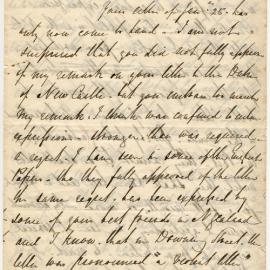 Your letter of Jan 25 has
only now come to hand. I am not
surprised that you did not fully approve
of my remark on your letter to the Duke
of New Castle. But you mistook the
My remark. I think was confined to one
expression. Stronger than was required
I regret. I have seen in some of the English
Papers. tho' they fully approved of the letter
the same regret. has been expressed by
some of your best friends in N Zealand
and I know, that in Downing Street, the
letter was pronounced "a violent letter"